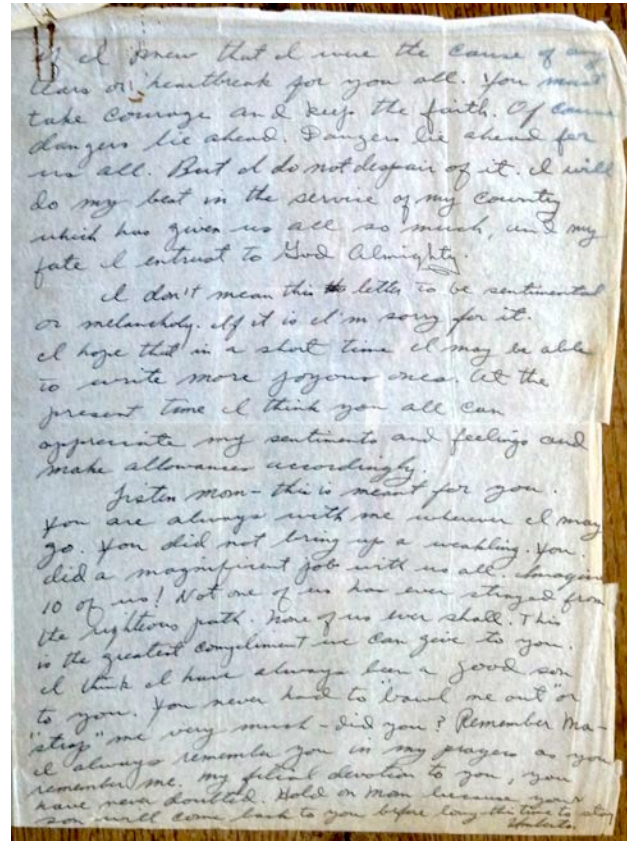 If I knew that I were the cause of any
tears or heartbreak for you all. You must
take courage and keep the faith. Of course
dangers lie ahead. Dangers lie ahead for
us all. But I do not despair of it. I will
do my best in the service of my country
which has given us all so much, and my
fate I entrust to God Almighty.
I don't mean this letter to be sentimental
or melancholy. If it is I'm sorry for it.
I hope that in a short time I may be able
to write more joyous ones. At the
present time I think you all can
appreciate my sentiments and feelings and
make allowances accordingly.
Listen mom - this is meant for you.
You are always with me wherever I may
go. You did not bring up a weakling. You
did a magnificent job with us all. Imagine
10 of us! Not one of us has ever strayed from
the righteous path. None of us ever shall. This
is the greatest compliment we can give to you.
I think I have always been a good son
to you. You never had to "bawl me out" or
"strap" me very much - did you? Remember Ma -
I always remember you in my prayers as you
remember me. My filial devotion to you, you
have never doubted. Hold on Mom because your
son will come back to you before long this time to stay
Umberto.